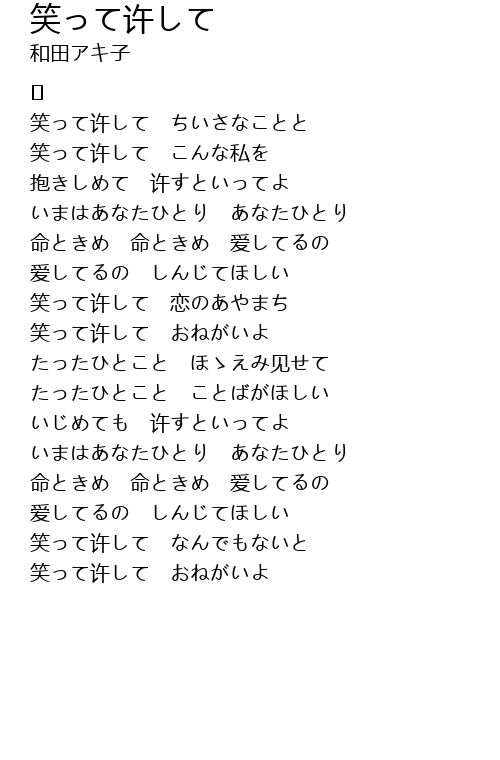 笑って许して
和田アキ子
笑って许して　ちいさなことと
笑って许して　こんな私を
抱きしめて　许すといってよ
いまはあなたひとり　あなたひとり
命ときめ　命ときめ　爱してるの
爱してるの　しんじてほしい
笑って许して　恋のあやまち
笑って许して　おねがいよ
たったひとこと　ほゝえみ见せて
たったひとこと　ことばがほしい
いじめても　许すといってよ
いまはあなたひとり　あなたひとり
命ときめ　命ときめ　爱してるの
爱してるの　しんじてほしい
笑って许して　なんでもないと
笑って许して　おねがいよ